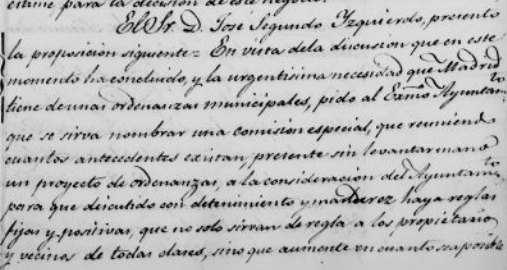 estime para la decision de este nego
El Sr. D. José Segundo Yzquierdo, presentó
la proposicion siguiente= En vista dela discusion que en este
momento ha concluido, y la urgentisima necesidad que Madrid
tiene de unas ordenanzas municipales, pido al Exmo Ayuntamto
que se sirva nombrar una comision especial, que reuniendo
cuantos antecedentes existan, presente sin levantar mano
un proyecto de ordenanzas, a la consideracion del Ayuntamto
para que discutido con detenimiento y madurez haya reglas
fijas y positivas, que no solo sirvan de regla a los propietarios
y vecinos de todas clases, sino que aumente en cuanto sea posible